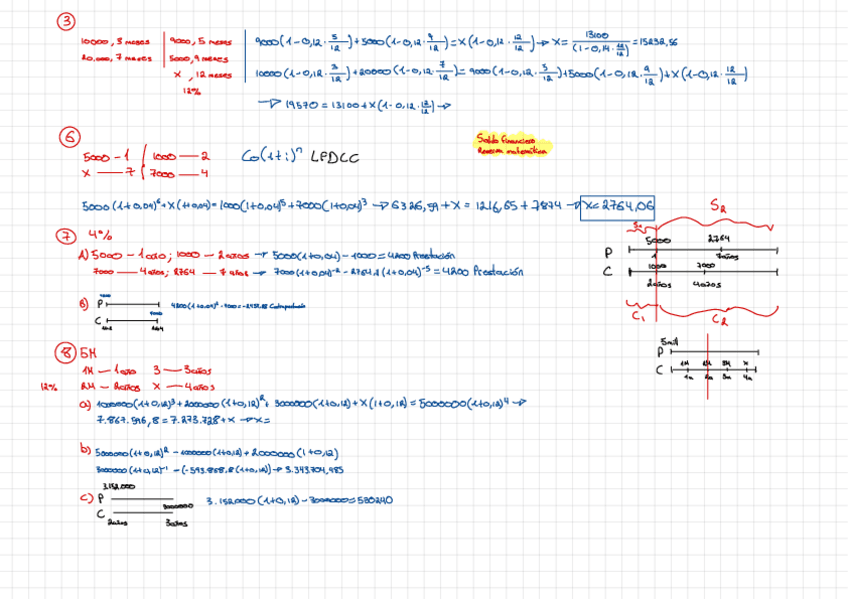 3
10000, 3 meses | 9000, 5 meses
20.000, 7 meses | 5000, 9 meses
x, 12 meses
12%
9000(1-0,12·5/12)+5000(1-0,12·9/12)=x(1-0,12·12/12) → x=13100/(1-0,14·12/12)=15232,56
10000(1-0,12·3/12)+20000(1-0,12·7/12)=9000(1-0,12·5/12)+5000(1-0,12·9/12)+x(1-0,12·12/12)
→ 19570=13100+x(1-0,12·12/12) →
6
5000 - 1 | 1000 — 2
x — 7 | 7000 — 4
Co(1+i)ⁿ LPDCC
Saldo financiero
Reserva matemática
5000(1+0,04)⁶+x(1+0,04)=1000(1+0,04)⁵+7000(1+0,04)³ → 6326,59+x=1216,65+7874 → x=2764,06
7 4%
A) 5000 - 1 año; 1000 - 2 años → 5000(1+0,04)-1000=4200 Prestación
7000 — 4 años; 2764 — 7 años → 7000(1+0,04)⁻²-2764,1(1+0,04)⁻⁵=4200 Prestación
B) P
C
S₂
5000 2764
P
1 7años
C
1000 7000
2años 4años
C₁ C₂
8 5M
1M — 1año 3 — 3años
12% 2M — 2años x — 4años
a) 1000000(1+0,12)³+2000000(1+0,12)²+3000000(1+0,12)+x(1+0,12)=5000000(1+0,12)⁴ →
7.867.596,8=7.273.728+x → x=
b) 5000000(1+0,12)²-1000000(1+0,12)+2000000(1+0,12)
3000000(1+0,12)⁻¹-(-593.868,8(1+0,12)) → 3.343.704,485
c) P 3.152.000
C 3000000
2años 3años
3.152.000(1+0,12)-3000000=530240
5mil
P
1M 2M 3M x
C
1a 2a 3a 4a